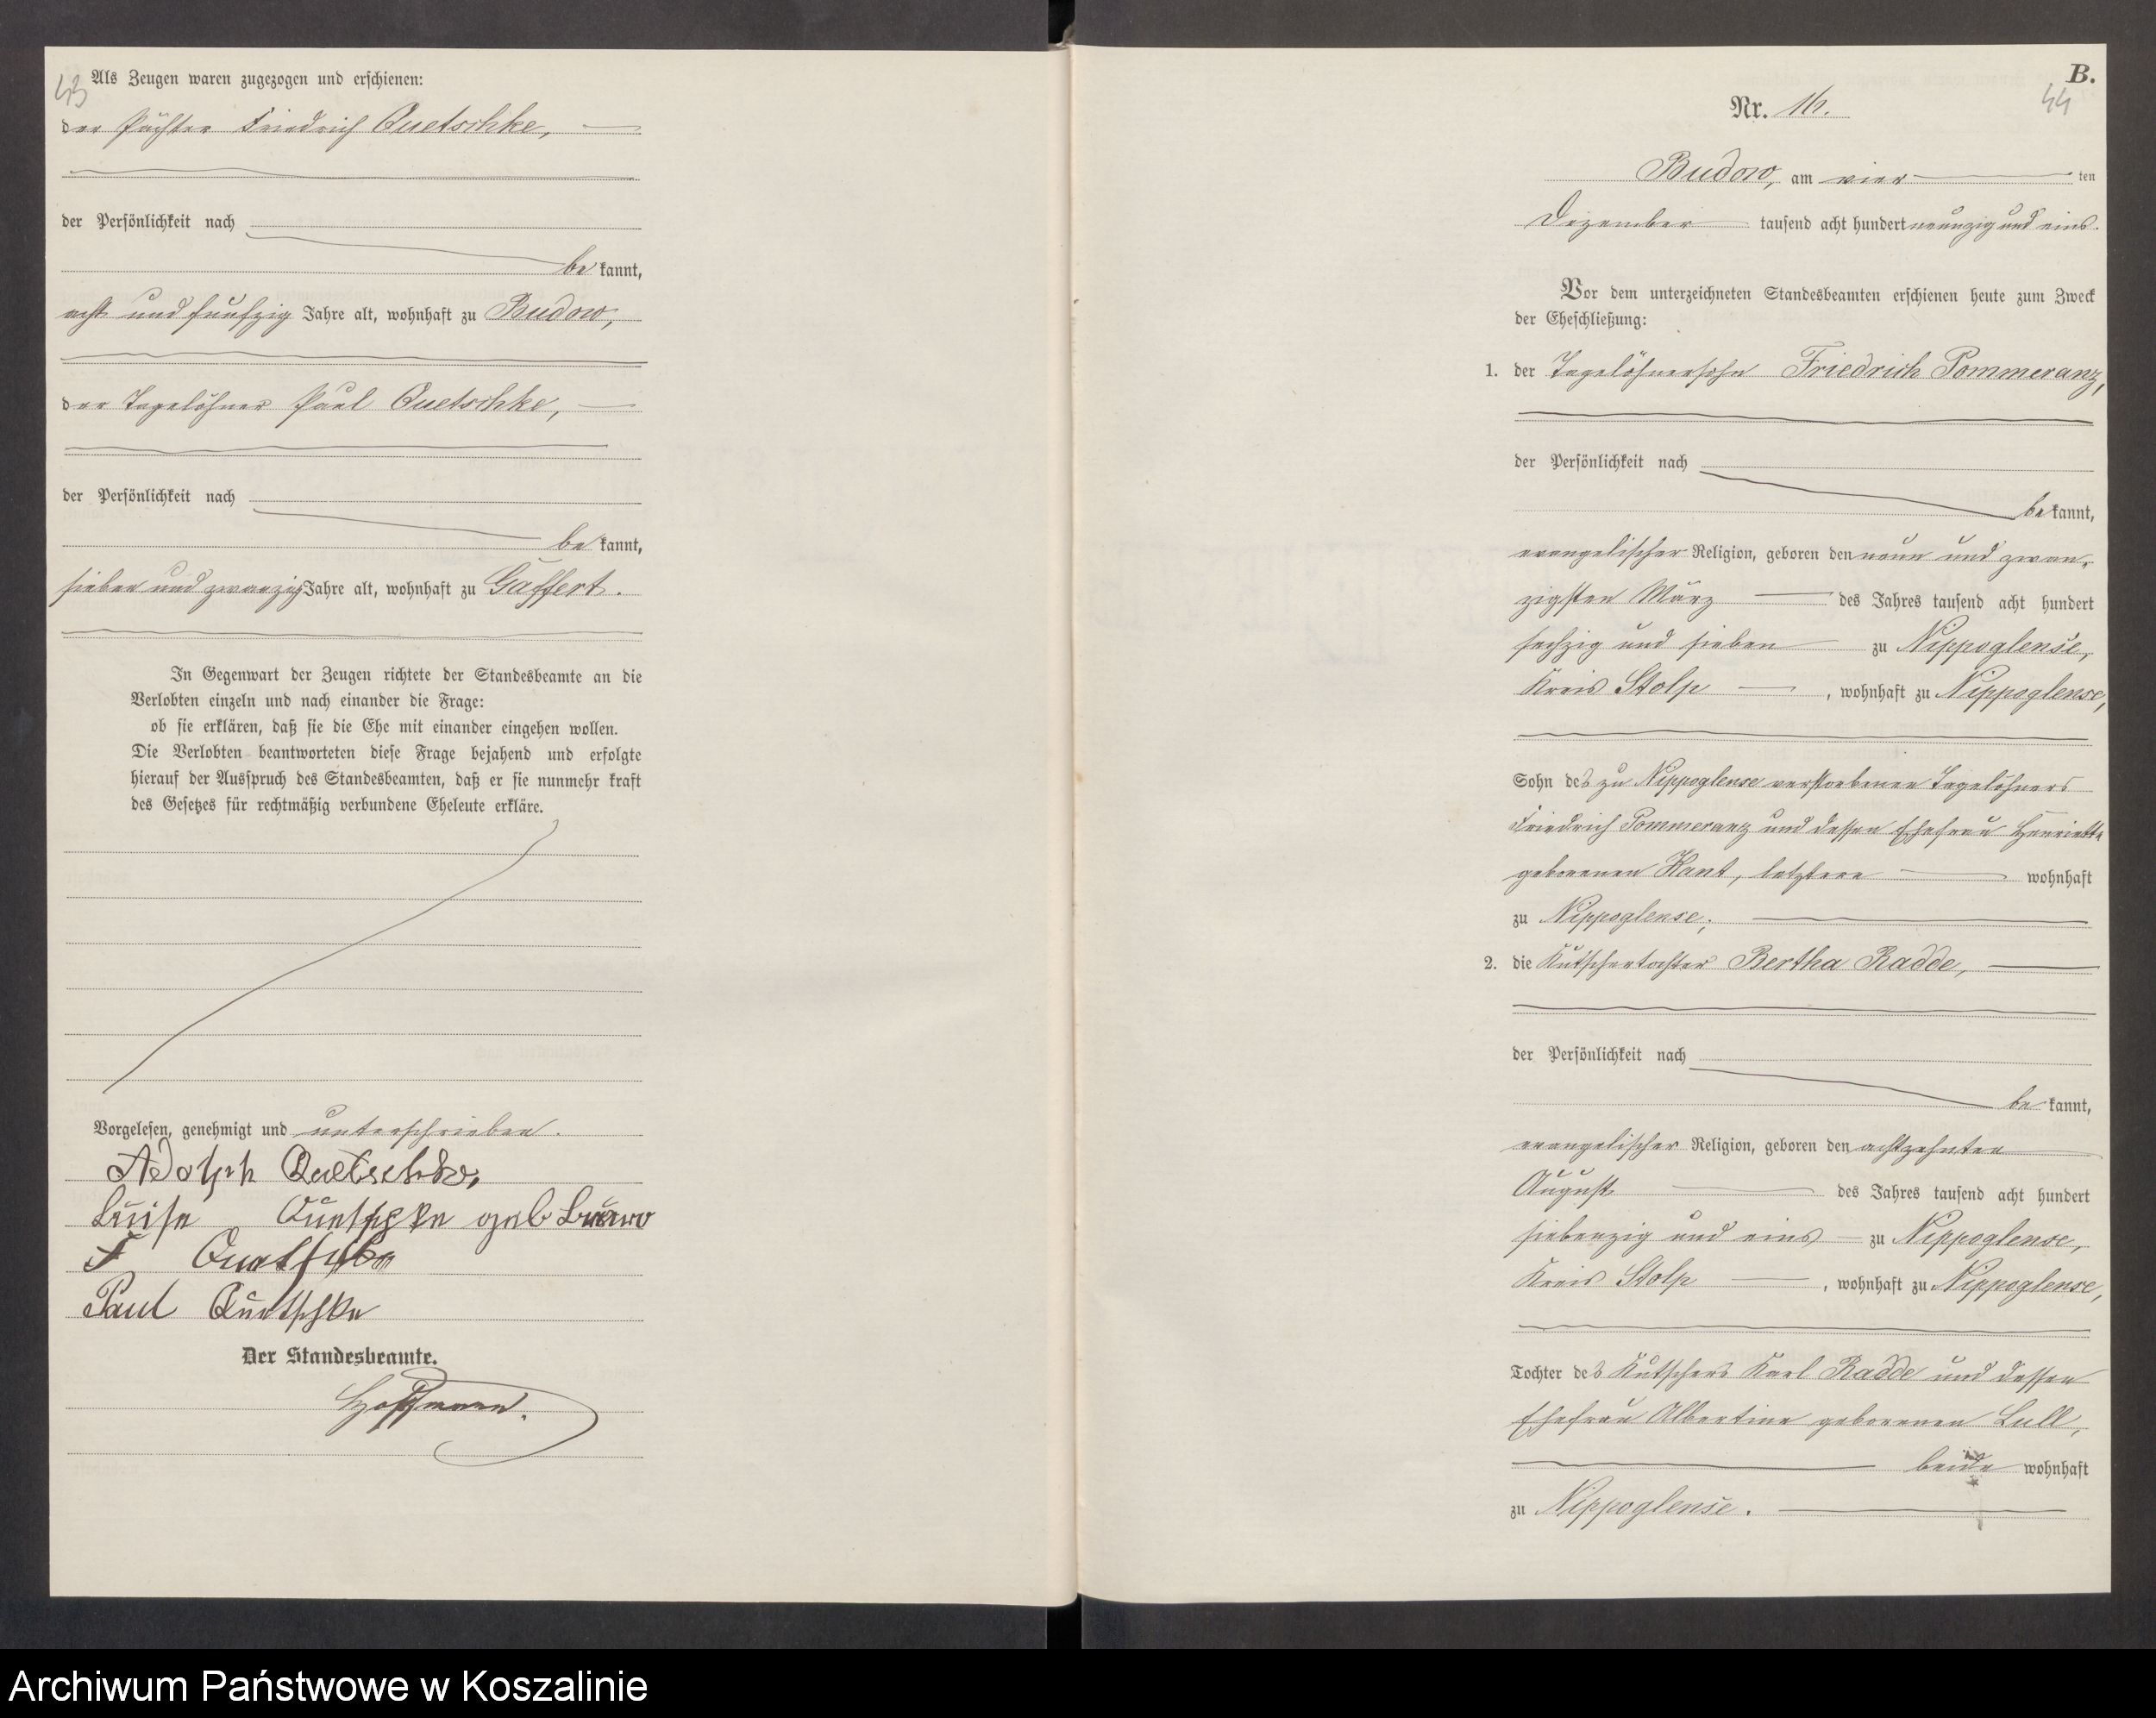 43
Als Zeugen waren zugezogen und erschienen:
der Pächter Friedrich Quetschke,
der Persönlichkeit nach
be kannt,
acht und funfzig Jahre alt, wohnhaft zu Budow,
der Tagelöhner Paul Quetschke,
der Persönlichkeit nach
be kannt,
sieben und zwanzig Jahre alt, wohnhaft zu Gaffert.
In Gegenwart der Zeugen richtete der Standesbeamte an die
Verlobten einzeln und nach einander die Frage:
ob sie erklären, daß sie die Ehe mit einander eingehen wollen.
Die Verlobten beantworteten diese Frage bejahend und erfolgte
hierauf der Ausspruch des Standesbeamten, daß er sie nunmehr kraft
des Gesetzes für rechtmäßig verbundene Eheleute erkläre.
Vorgelesen, genehmigt und unterschrieben.
Adolph Quetschke,
Luise Quetschke geb
F Quetschke
Paul Quetschke
Der Standesbeamte.
Hoffmann.
B.
44
Nr. 16.
Budow, am vier ten
Dezember tausend acht hundert neunzig und eins.
Vor dem unterzeichneten Standesbeamten erschienen heute zum Zweck
der Eheschließung:
1. der Tagelöhnersohn Friedrich Pommeranz,
der Persönlichkeit nach
be kannt,
evangelischer Religion, geboren den neun und zwan-
zigsten März des Jahres tausend acht hundert
sechzig und sieben zu Nippoglense,
Kreis Stolp, wohnhaft zu Nippoglense,
Sohn des zu Nippoglense verstorbenen Tagelöhners
Friedrich Pommeranz und dessen Ehefrau Henriette
geborenen Kant, letztere wohnhaft
zu Nippoglense;
2. die Kutschertochter Bertha Radde,
der Persönlichkeit nach
be kannt,
evangelischer Religion, geboren den achtzehnten
August des Jahres tausend acht hundert
siebenzig und eins zu Nippoglense,
Kreis Stolp, wohnhaft zu Nippoglense,
Tochter des Kutschers Karl Radde und dessen
Ehefrau Albertine geborenen Lull,
beide wohnhaft
zu Nippoglense.
Archiwum Państwowe w Koszalinie